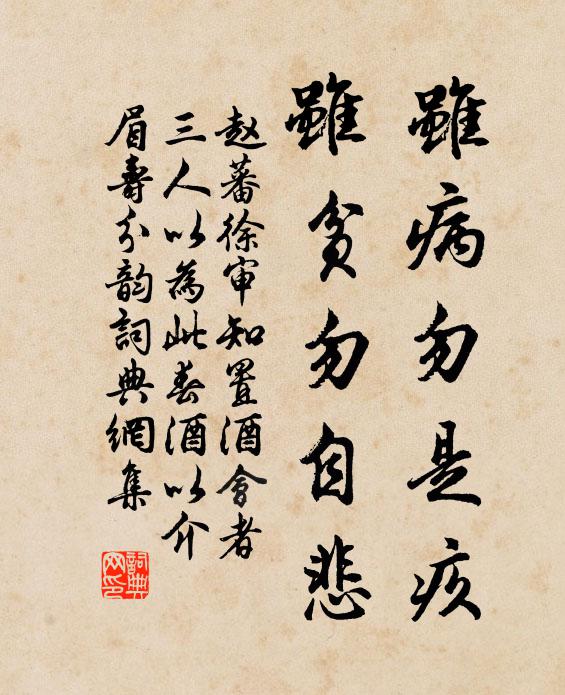 雖病勿是疾
雖貧勿自悲
赵蕃徐审知置酒會者
三人以為此春酒以介
眉壽分韵詞典網集
詞典網印